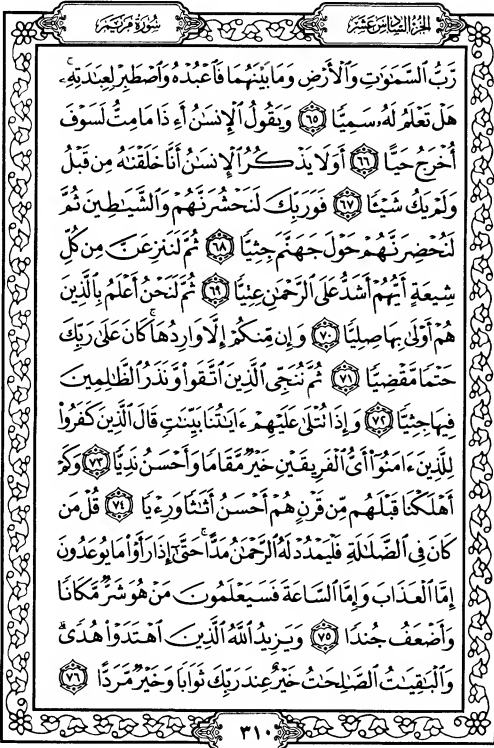 الجزء السادس عشر
سورة مريم
رَّبُّ السَّمَٰوَٰتِ وَالْأَرْضِ وَمَا بَيْنَهُمَا فَاعْبُدْهُ وَاصْطَبِرْ لِعِبَٰدَتِهِۦ ۚ
هَلْ تَعْلَمُ لَهُۥ سَمِيًّا ٦٥ وَيَقُولُ الْإِنسَٰنُ أَءِذَا مَا مِتُّ لَسَوْفَ
أُخْرَجُ حَيًّا ٦٦ أَوَلَا يَذْكُرُ الْإِنسَٰنُ أَنَّا خَلَقْنَٰهُ مِن قَبْلُ
وَلَمْ يَكُ شَيْـًٔا ٦٧ فَوَرَبِّكَ لَنَحْشُرَنَّهُمْ وَالشَّيَٰطِينَ ثُمَّ
لَنُحْضِرَنَّهُمْ حَوْلَ جَهَنَّمَ جِثِيًّا ٦٨ ثُمَّ لَنَنزِعَنَّ مِن كُلِّ
شِيعَةٍ أَيُّهُمْ أَشَدُّ عَلَى الرَّحْمَٰنِ عِتِيًّا ٦٩ ثُمَّ لَنَحْنُ أَعْلَمُ بِالَّذِينَ
هُمْ أَوْلَىٰ بِهَا صِلِيًّا ٧٠ وَإِن مِّنكُمْ إِلَّا وَارِدُهَا ۚ كَانَ عَلَىٰ رَبِّكَ
حَتْمًا مَّقْضِيًّا ٧١ ثُمَّ نُنَجِّي الَّذِينَ اتَّقَوا۟ وَّنَذَرُ الظَّٰلِمِينَ
فِيهَا جِثِيًّا ٧٢ وَإِذَا تُتْلَىٰ عَلَيْهِمْ ءَايَٰتُنَا بَيِّنَٰتٍ قَالَ الَّذِينَ كَفَرُوا۟
لِلَّذِينَ ءَامَنُوٓا۟ أَيُّ الْفَرِيقَيْنِ خَيْرٌ مَّقَامًا وَأَحْسَنُ نَدِيًّا ٧٣ وَكَمْ
أَهْلَكْنَا قَبْلَهُم مِّن قَرْنٍ هُمْ أَحْسَنُ أَثَٰثًا وَرِءْيًا ٧٤ قُلْ مَن
كَانَ فِي الضَّلَٰلَةِ فَلْيَمْدُدْ لَهُ الرَّحْمَٰنُ مَدًّا ۚ حَتَّىٰٓ إِذَا رَأَوْا۟ مَا يُوعَدُونَ
إِمَّا الْعَذَابَ وَإِمَّا السَّاعَةَ فَسَيَعْلَمُونَ مَنْ هُوَ شَرٌّ مَّكَانًا
وَأَضْعَفُ جُندًا ٧٥ وَيَزِيدُ اللَّهُ الَّذِينَ اهْتَدَوْا۟ هُدًى ۗ
وَالْبَٰقِيَٰتُ الصَّٰلِحَٰتُ خَيْرٌ عِندَ رَبِّكَ ثَوَابًا وَخَيْرٌ مَّرَدًّا ٧٦
٣١٠